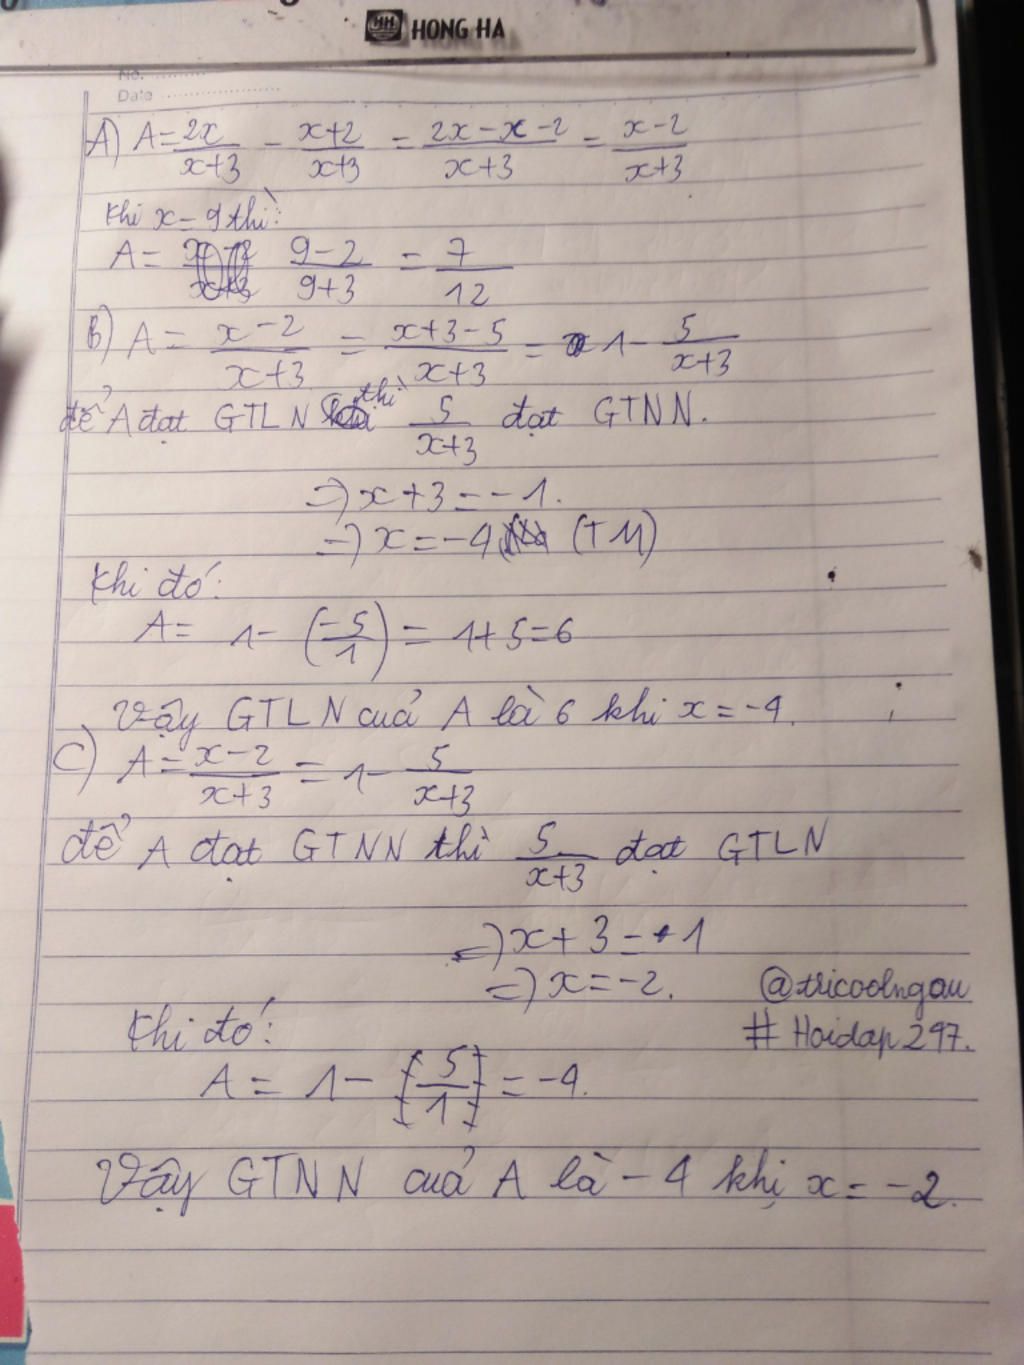 HH HONG HA
No. ............
Date ....................
A) A = 2x/x+3 - x+2/x+3 = 2x-x-2/x+3 = x-2/x+3
Khi x = 9 thì:
A = 9-2/9+3 = 7/12
b) A = x-2/x+3 = x+3-5/x+3 = 1 - 5/x+3
để A đạt GTLN thì 5/x+3 đạt GTNN.
=> x+3 = -1.
=> x = -4 (TM)
Khi đó:
A = 1 - (-5/1) = 1+5 = 6
Vậy GTLN cuả A là 6 khi x = -4.
C) A = x-2/x+3 = 1 - 5/x+3
để A đạt GTNN thì 5/x+3 đạt GTLN
=> x+3 = +1
=> x = -2.
@tricoolngau
Khi đó:
# Hoidap247.
A = 1 - [5/1] = -4.
Vậy GTNN cuả A là -4 khị x = -2.